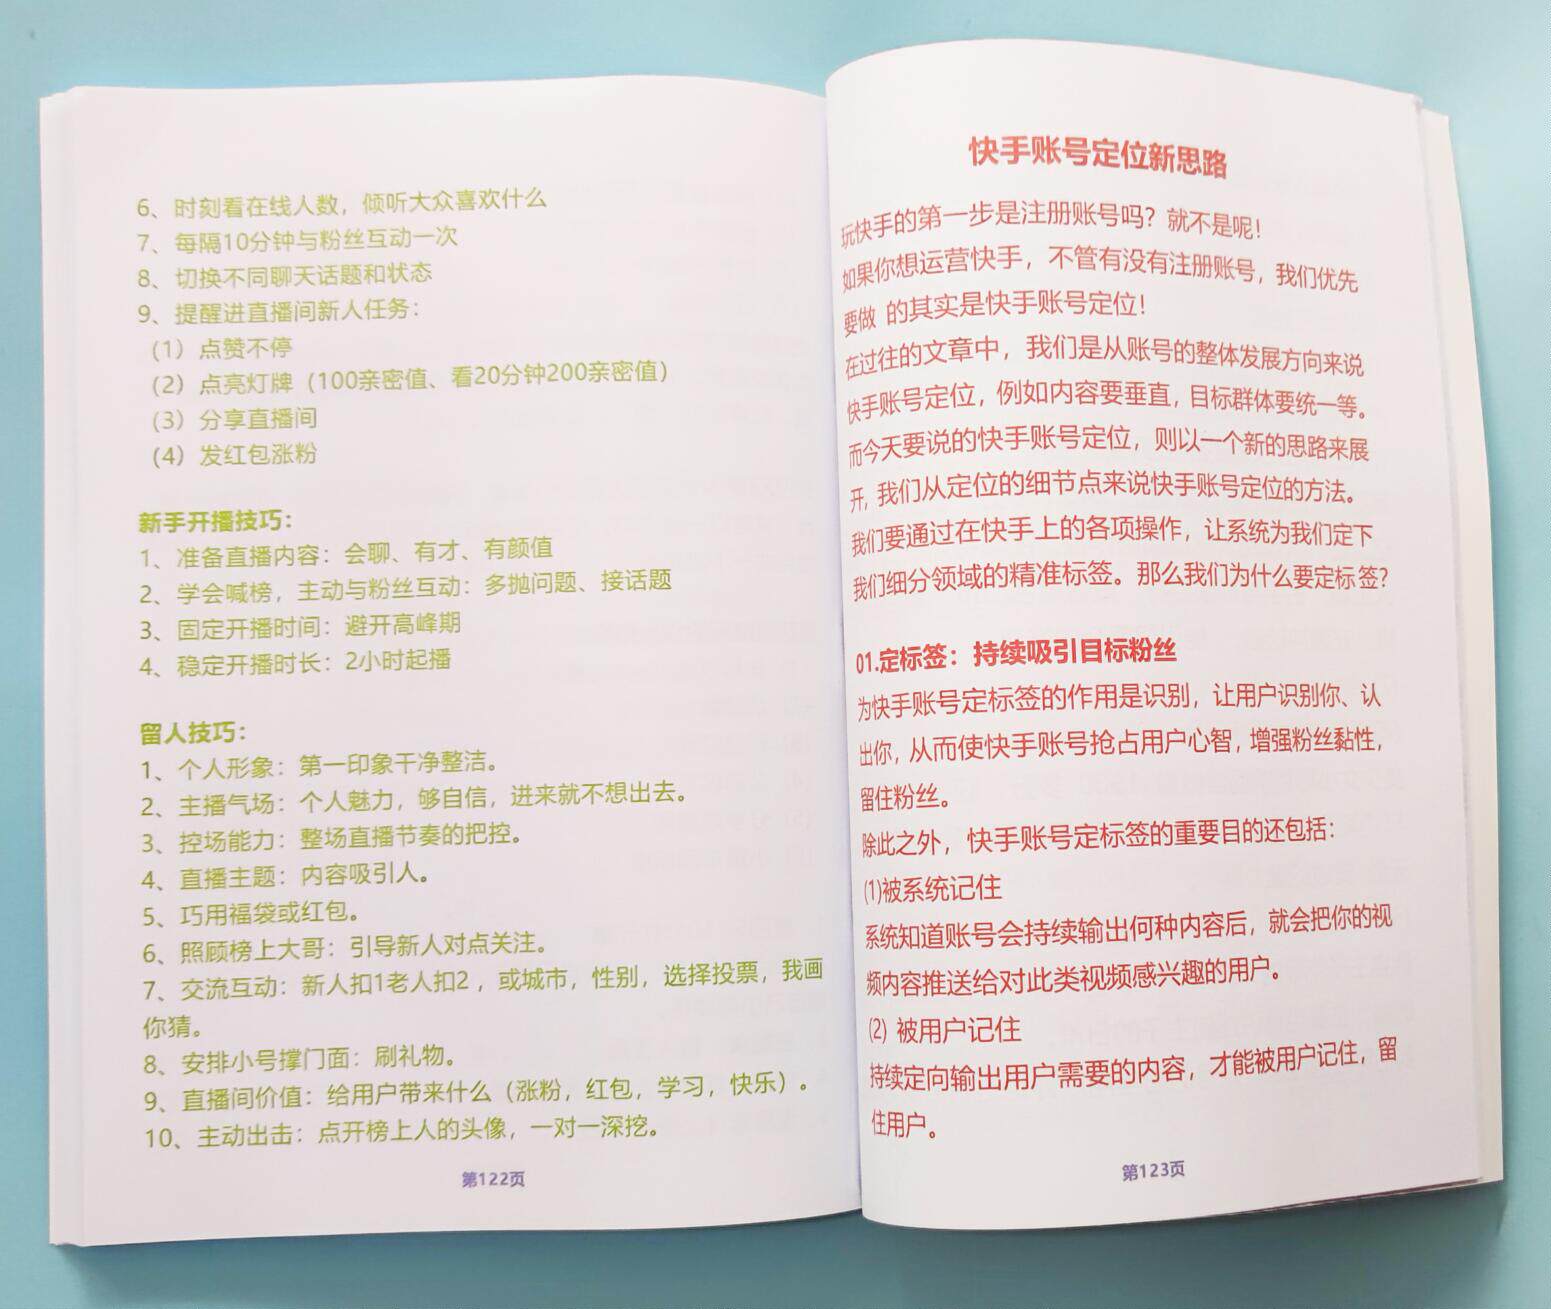 6、时刻看在线人数，倾听大众喜欢什么
7、每隔10分钟与粉丝互动一次
8、切换不同聊天话题和状态
9、提醒进直播间新人任务：
（1）点赞不停
（2）点亮灯牌（100亲密值、看20分钟200亲密值）
（3）分享直播间
（4）发红包涨粉
新手开播技巧：
1、准备直播内容：会聊、有才、有颜值
2、学会喊榜，主动与粉丝互动：多抛问题、接话题
3、固定开播时间：避开高峰期
4、稳定开播时长：2小时起播
留人技巧：
1、个人形象：第一印象干净整洁。
2、主播气场：个人魅力，够自信，进来就不想出去。
3、控场能力：整场直播节奏的把控。
4、直播主题：内容吸引人。
5、巧用福袋或红包。
6、照顾榜上大哥：引导新人对点关注。
7、交流互动：新人扣1老人扣2，或城市，性别，选择投票，我画
你猜。
8、安排小号撑门面：刷礼物。
9、直播间价值：给用户带来什么（涨粉，红包，学习，快乐）。
10、主动出击：点开榜上人的头像，一对一深挖。
第122页
快手账号定位新思路
玩快手的第一步是注册账号吗？就不是呢！
如果你想运营快手，不管有没有注册账号，我们优先
要做 的其实是快手账号定位！
在过往的文章中，我们是从账号的整体发展方向来说
快手账号定位，例如内容要垂直，目标群体要统一等。
而今天要说的快手账号定位，则以一个新的思路来展
开，我们从定位的细节点来说快手账号定位的方法。
我们要通过在快手上的各项操作，让系统为我们定下
我们细分领域的精准标签。那么我们为什么要定标签？
01.定标签：持续吸引目标粉丝
为快手账号定标签的作用是识别，让用户识别你、认
出你，从而使快手账号抢占用户心智，增强粉丝黏性，
留住粉丝。
除此之外，快手账号定标签的重要目的还包括：
(1)被系统记住
系统知道账号会持续输出何种内容后，就会把你的视
频内容推送给对此类视频感兴趣的用户。
(2) 被用户记住
持续定向输出用户需要的内容，才能被用户记住，留
住用户。
第123页